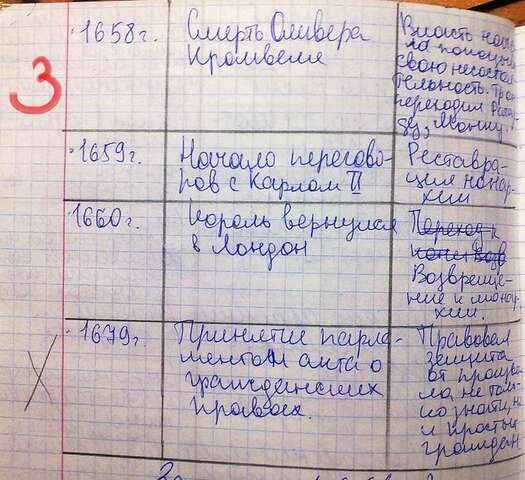 3
1658г.
Смерть Оливера
Кромвеля
Власть нача-
ла показыв
свою несостоя
тельность. Трон
переходил
Монку.
1659г.
Начало перегово-
ров с Карлом II
Реставра-
ция монар-
хии
1660г.
Король вернулся
в Лондон
Переход к
Возвраще-
ние к монар-
хии.
1679г.
Принятие парла-
ментом акта о
гражданских
правах.
Правовая
защита
от произво
ла, не толь-
ко знати, но
и простых
граждан